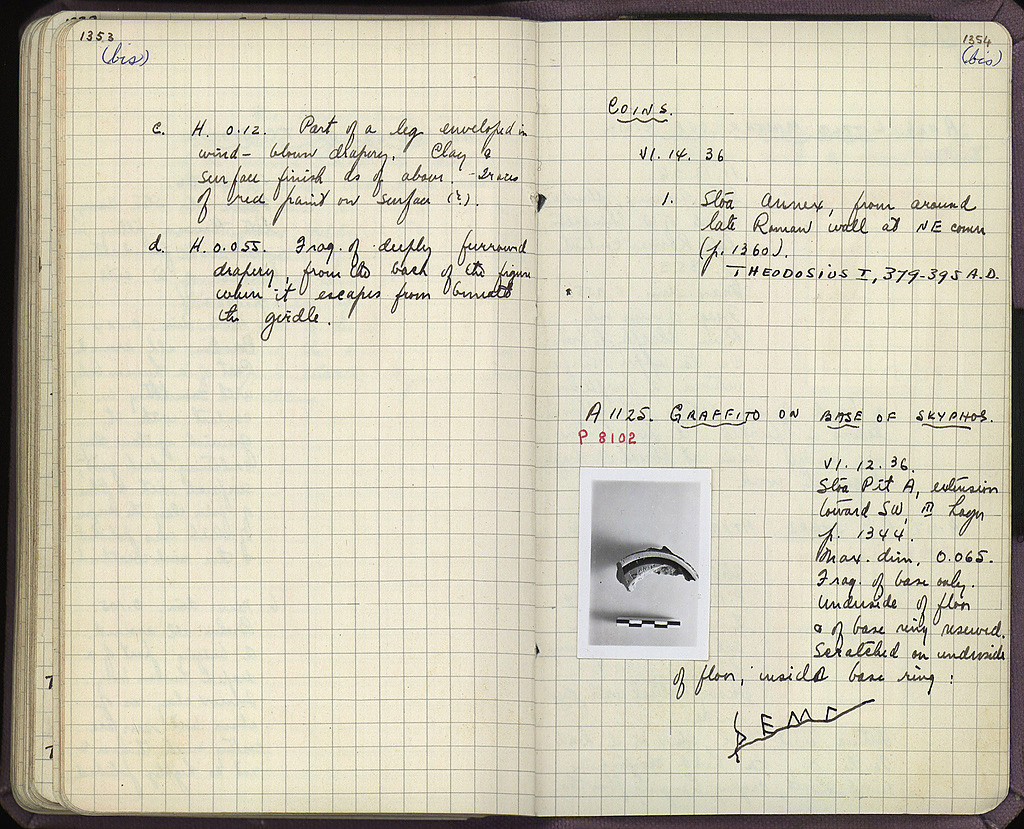 1353
(bis)
c. H. 0.12. Part of a leg enveloped in
wind-blown drapery. Clay &
surface finish as of above. - Traces
of red paint on surface (?).
d. H. 0.055. Frag. of deeply furrowed
drapery, from the back of the figure
when it escapes from beneath
the girdle.
1354
(bis)
COINS.
VI. 14. 36
1. Stoa Annex, from around
late Roman wall at NE corner
(p. 1360).
THEODOSIUS I, 379-395 A.D.
A 1125. GRAFFITO ON BASE OF SKYPHOS.
P 8102
VI. 12. 36.
Stoa Pit A, extension
toward SW, III Layer
p. 1344.
Max. dim. 0.065.
Frag. of base only.
Underside of floor
& of base ring reserved.
Scratched on underside
of floor, inside base ring: